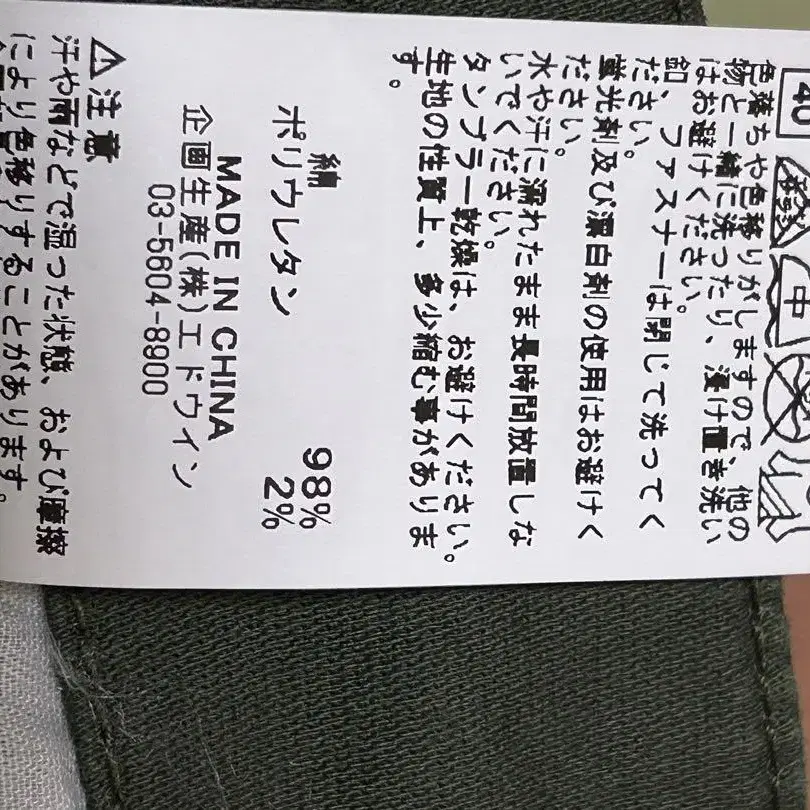 40
中
色落ちや色移りがしますので、他の
物と一緒に洗ったり、浸け置き洗い
はお避けください。
釦、ファスナーは閉じて洗ってく
ださい。
蛍光剤及び漂白剤の使用はお避けく
ださい。
水や汗に濡れたまま長時間放置しな
いでください。
タンブラー乾燥は、お避けください。
生地の性質上、多少縮む事がありま
す。
綿 98%
ポリウレタン 2%
MADE IN CHINA
企画生産(株)エドウイン
03-5604-8900
⚠注意
汗や雨などで湿った状態、および摩擦
により色移りすることがあります。